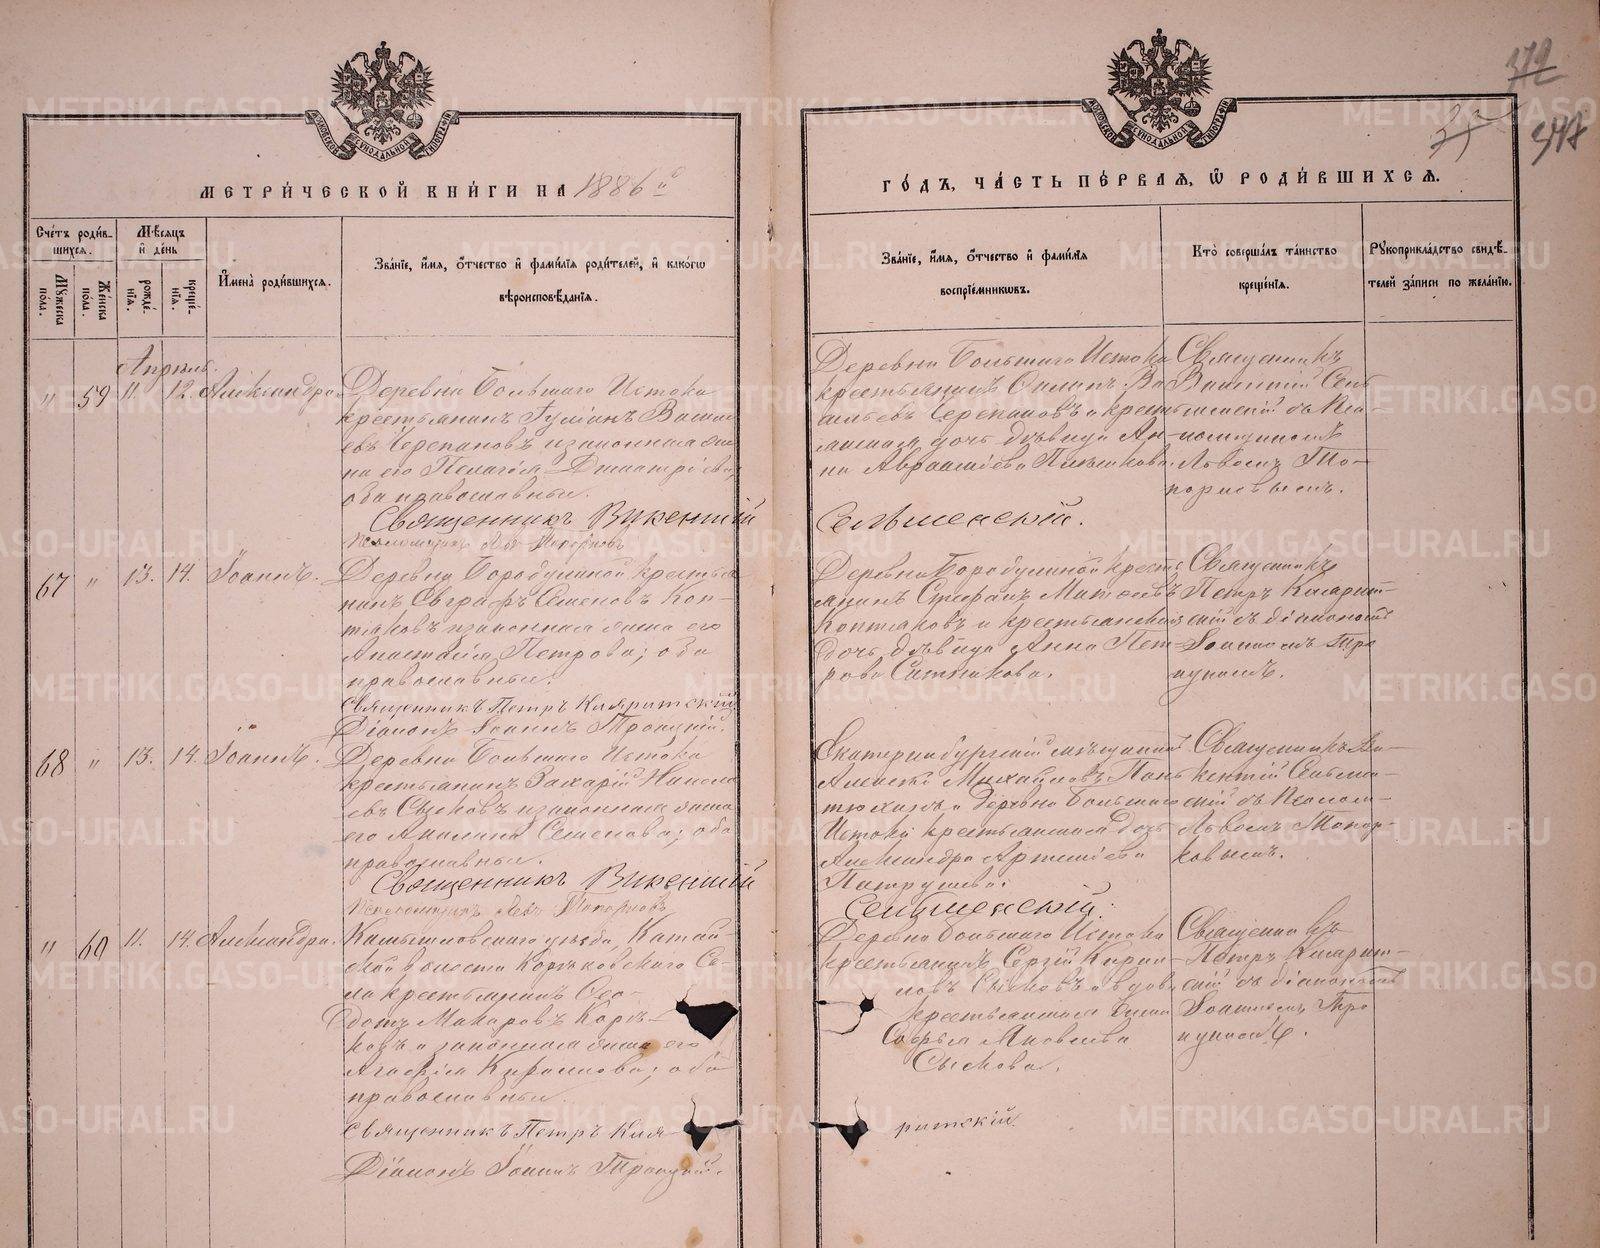 МЕТРИ́ЧЕСКОЙ КНИ́ГИ НА 1886 й
ГО́ДЪ, ЧА́СТЬ ПЕ́РВАѦ, Ѽ РОДИ́ВШИХСѦ.
Сче́тъ роди́в-
шихсѧ.
Мѣ́сѧцъ
и҆ де́нь
Мꙋ́жеска по́ла.
Же́нска по́ла.
рожде́-
нїѧ.
креще́-
нїѧ.
И҆мена̀ роди́вшихсѧ.
Зва́нїе, и҆́мѧ, ѻ҆́тчество и҆ фами́лїѧ роди́телей, и҆ како́гѡ
вѣроисповѣ́данїѧ.
Зва́нїе, и҆́мѧ, ѻ҆́тчество и҆ фами́лїѧ
воспрїе́мникѡвъ.
Кто̀ соверша́лъ та́инство
креще́нїѧ.
Рꙋкоприкла́дство свидѣ́-
телей за́писи по жела́нїю.
Апрѣль.
" 59 11. 12. Александра.
Деревни Большаго Истока
крестьянинъ Василь
евъ Черепановъ и законная же
на его Пелагія Димитріева,
оба православные.
Священникъ Викентій
Псаломщикъ Левъ Топорковъ
Деревни Большаго Истока
крестьянинъ Филипъ Ва
сильевъ Черепановъ и крестьян
ская дочь дѣвица Ан-
на Авраамiева
Сельменскій.
Священникъ
Викентій Сель
менскій съ Пса-
ломщикомъ
Львомъ То-
порковымъ.
67 " 13. 14. Іоаннъ.
Деревни Бородулиной крестья
нинъ Евграфъ Семеновъ Коп-
таковъ и законная жена его
Анастасія Петрова; оба
православные.
Священникъ Петръ Кларитскій
Діаконъ Іоаннъ Троицкій.
Деревни Бородулиной кресть
янинъ Стефанъ Матвѣевъ
Коптяковъ и крестьянская
дочь дѣвица Анна Пет-
рова Ситникова.
Священникъ
Петръ Кларит-
скій съ діакономъ
Іоанномъ Тро
ицкимъ.
68 " 13. 14. Іоаннъ.
Деревни Большаго Истока
крестьянинъ Захарій Никола
евъ Сысковъ и законная жена
его Акилина Семенова; оба
православные.
Священникъ Викентій
Псаломщикъ Левъ Топорковъ
Екатеринбургскій мѣщанинъ
Алексѣй Михайловъ Пань
тюхинъ и деревни Большаго
Истока крестьянская дочь
Александра Артемiева
Патрушева.
Сельменскій.
Священникъ Ви-
кентій Сельмен
скій съ Псалом-
Львомъ Топор-
ковымъ.
" 60 11. 14. Александра.
Камышловскаго уѣзда, Катай-
ской волости Корюковскаго Се
ла крестьянинъ Ѳео-
дотъ Макаровъ Корю-
ковъ и законная жена его
Агафія Кириллова; оба
православные.
Священникъ Петръ Кла
ритскій.
Діаконъ Іоаннъ Троицкій.
Деревни Большаго Истока
крестьянинъ Сергій Кирил
ловъ Сысковъ и вдова
крестьянская жена
Софья Яковлева
Сыскова.
Священникъ
Петръ Кларит-
скій съ діакономъ
Іоанномъ Тро
ицкимъ.
METRIKI.GASO-URAL.RU